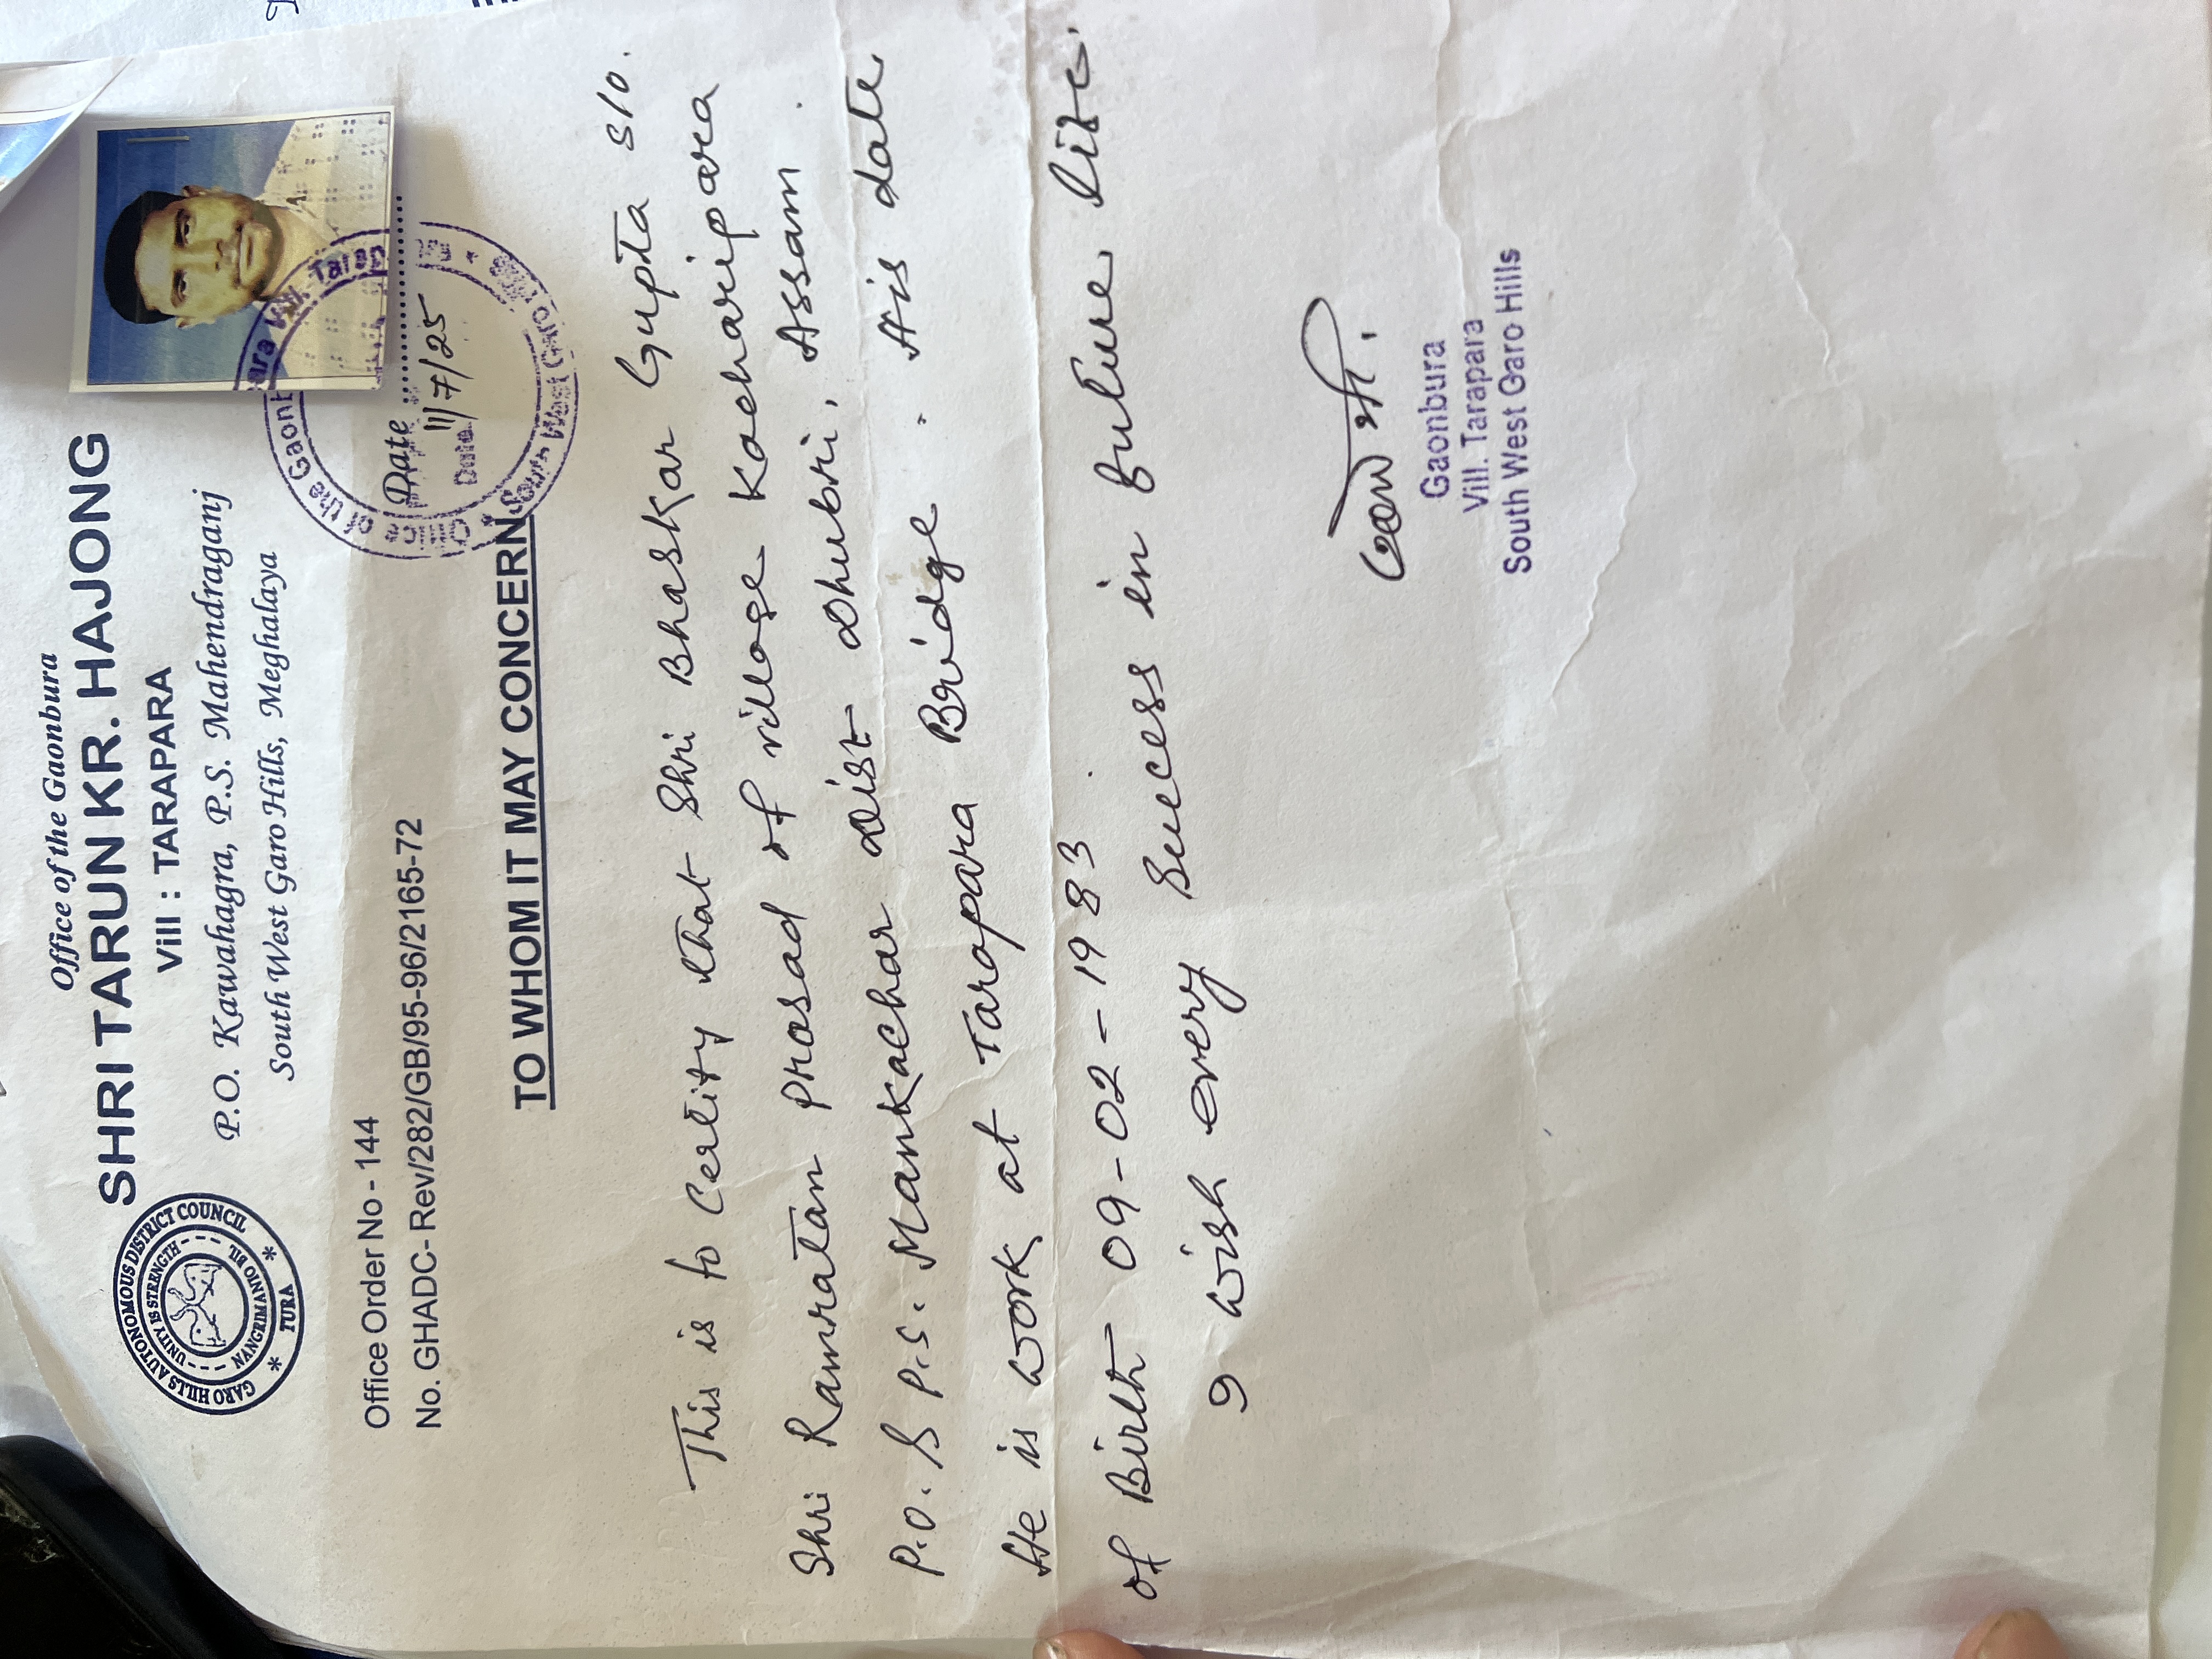 Office of the Gaonbura
SHRI TARUN KR. HAJONG
Vill : TARAPARA
P.O. Kawahagra, P.S. Mahendraganj
South West Garo Hills, Meghalaya
GARO HILLS AUTONOMOUS DISTRICT COUNCIL
UNITY IS STRENGTH
NANGRIMANIO BIL
* TURA *
Office Order No - 144
No. GHADC- Rev/282/GB/95-96/2165-72
Date
11/7/25
Office of the Gaon
Date
South West Garo
TO WHOM IT MAY CONCERN
This is to Cerlity that Shri Bhaskar Gupta S/O.
Shri Ramratan Prosad of village Kacharipara
P.O. & P.S. Mankachar Dist Dhubri, Assam.
He is work at Tarapara Bridge. His date
of Birth 09-02-1983.
I wish every Success in future life.
Gaonbura
Vill. Tarapara
South West Garo Hills